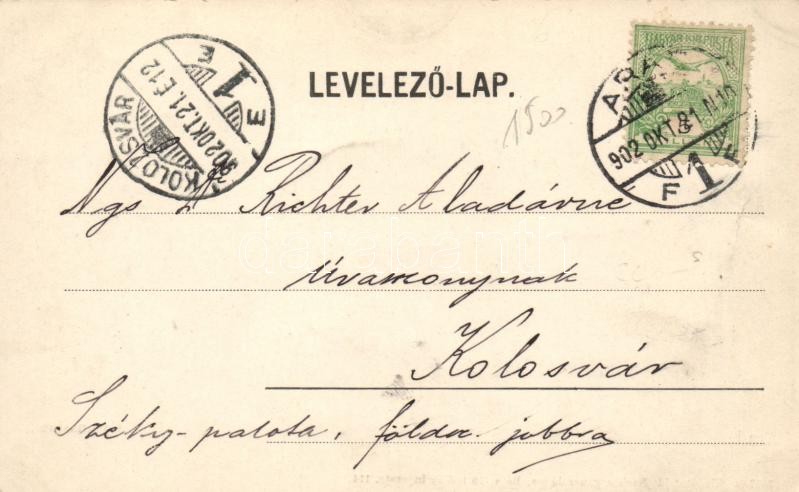 MAGYAR KIR. POSTA
LEVELEZŐ-LAP.
KOLOZSVÁR
902 OKT. 21. É. 12
E 1 E
ARAD
902 OKT. 21
F 1 F
1500
Ngs Richter Aladárné
Úrasszonynak
Kolosvár
Széky-palota, földsz. jobbra